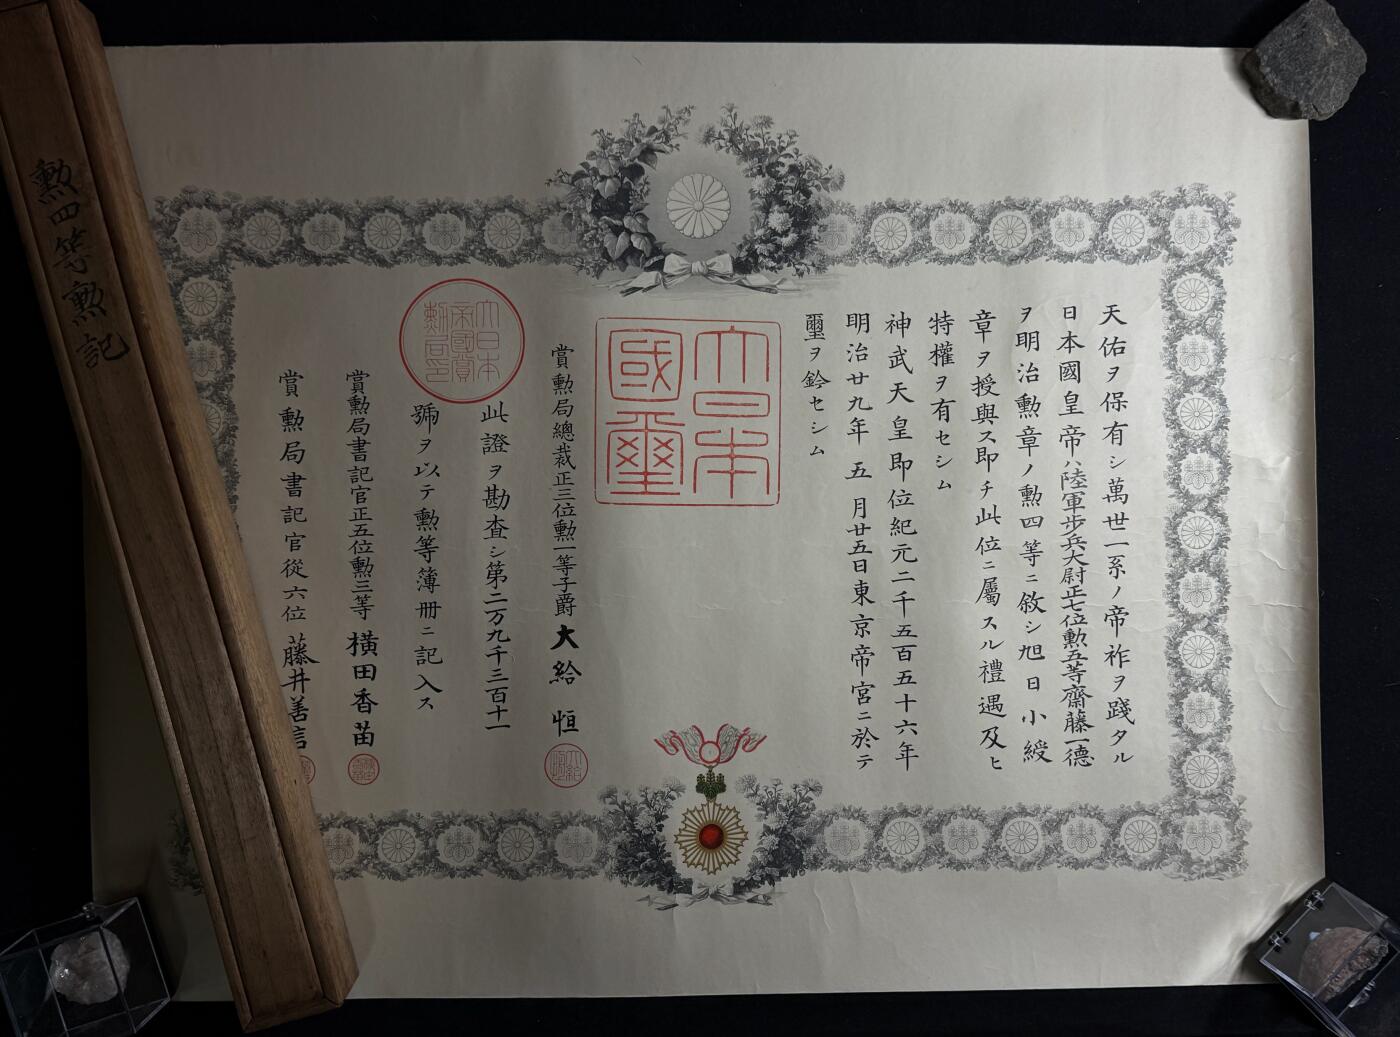 天佑ヲ保有シ萬世一系ノ帝祚ヲ踐タル
日本國皇帝ハ陸軍步兵大尉正七位勲五等齋藤一德
ヲ明治勲章ノ勲四等ニ敘シ旭日小綬
章ヲ授與ス即チ此位ニ屬スル禮遇及ヒ
特權ヲ有セシム
神武天皇即位紀元二千五百五十六年
明治廿九年五月廿五日東京帝宮ニ於テ
璽ヲ鈐セシム
大日本
國璽
賞勲局總裁正三位勲一等子爵大給恒
此證ヲ勘査シ第二万九千三百十一
號ヲ以テ勲等簿冊ニ記入ス
大日本
帝國賞
勲局印
賞勲局書記官正五位勲三等橫田香苗
賞勲局書記官從六位藤井善言
勲四等勲記